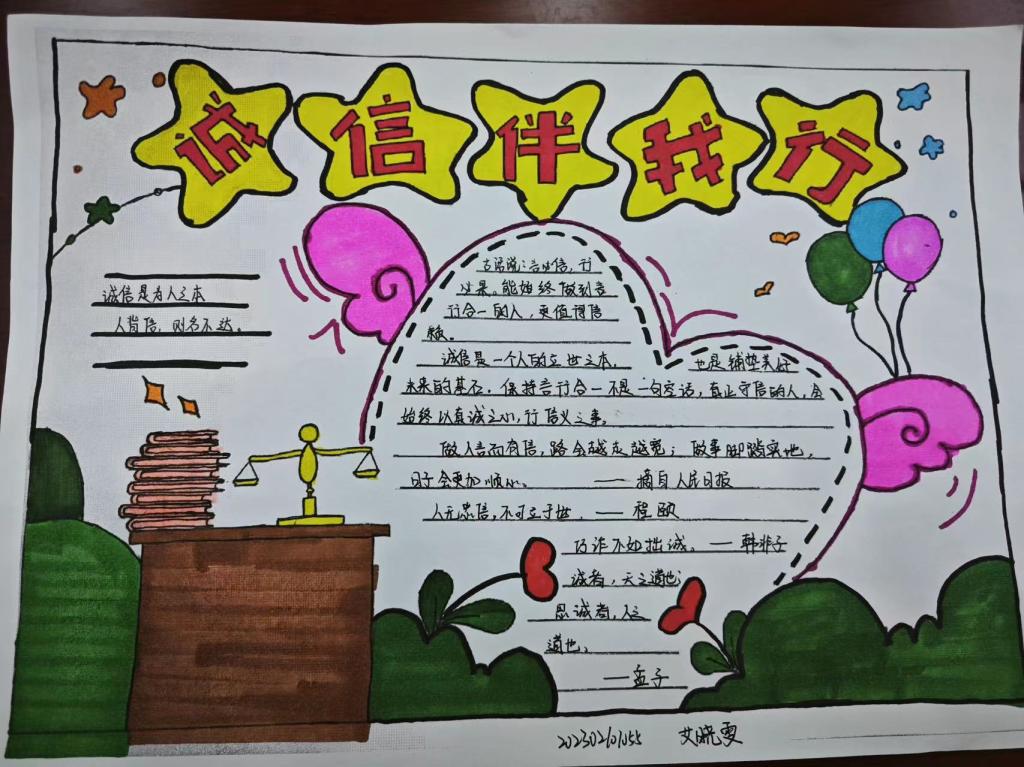 诚信伴我行
诚信是为人之本
人背信，则名不达。
古语说：言必信，行
必果。能始终做到言
行合一的人，更值得信
赖。
诚信是一个人的立世之本，
也是铺垫美好
未来的基石。保持言行合一不是一句空话，真正守信的人，会
始终以真诚之心，行信义之事。
做人言而有信，路会越走越宽；做事脚踏实地，
日子会更加顺心。——摘自人民日报
人无忠信，不可立于世。——程颐
巧诈不如拙诚。——韩非子
诚者，天之道也
思诚者，人之
道也。
——孟子
20230201055 艾晓雯